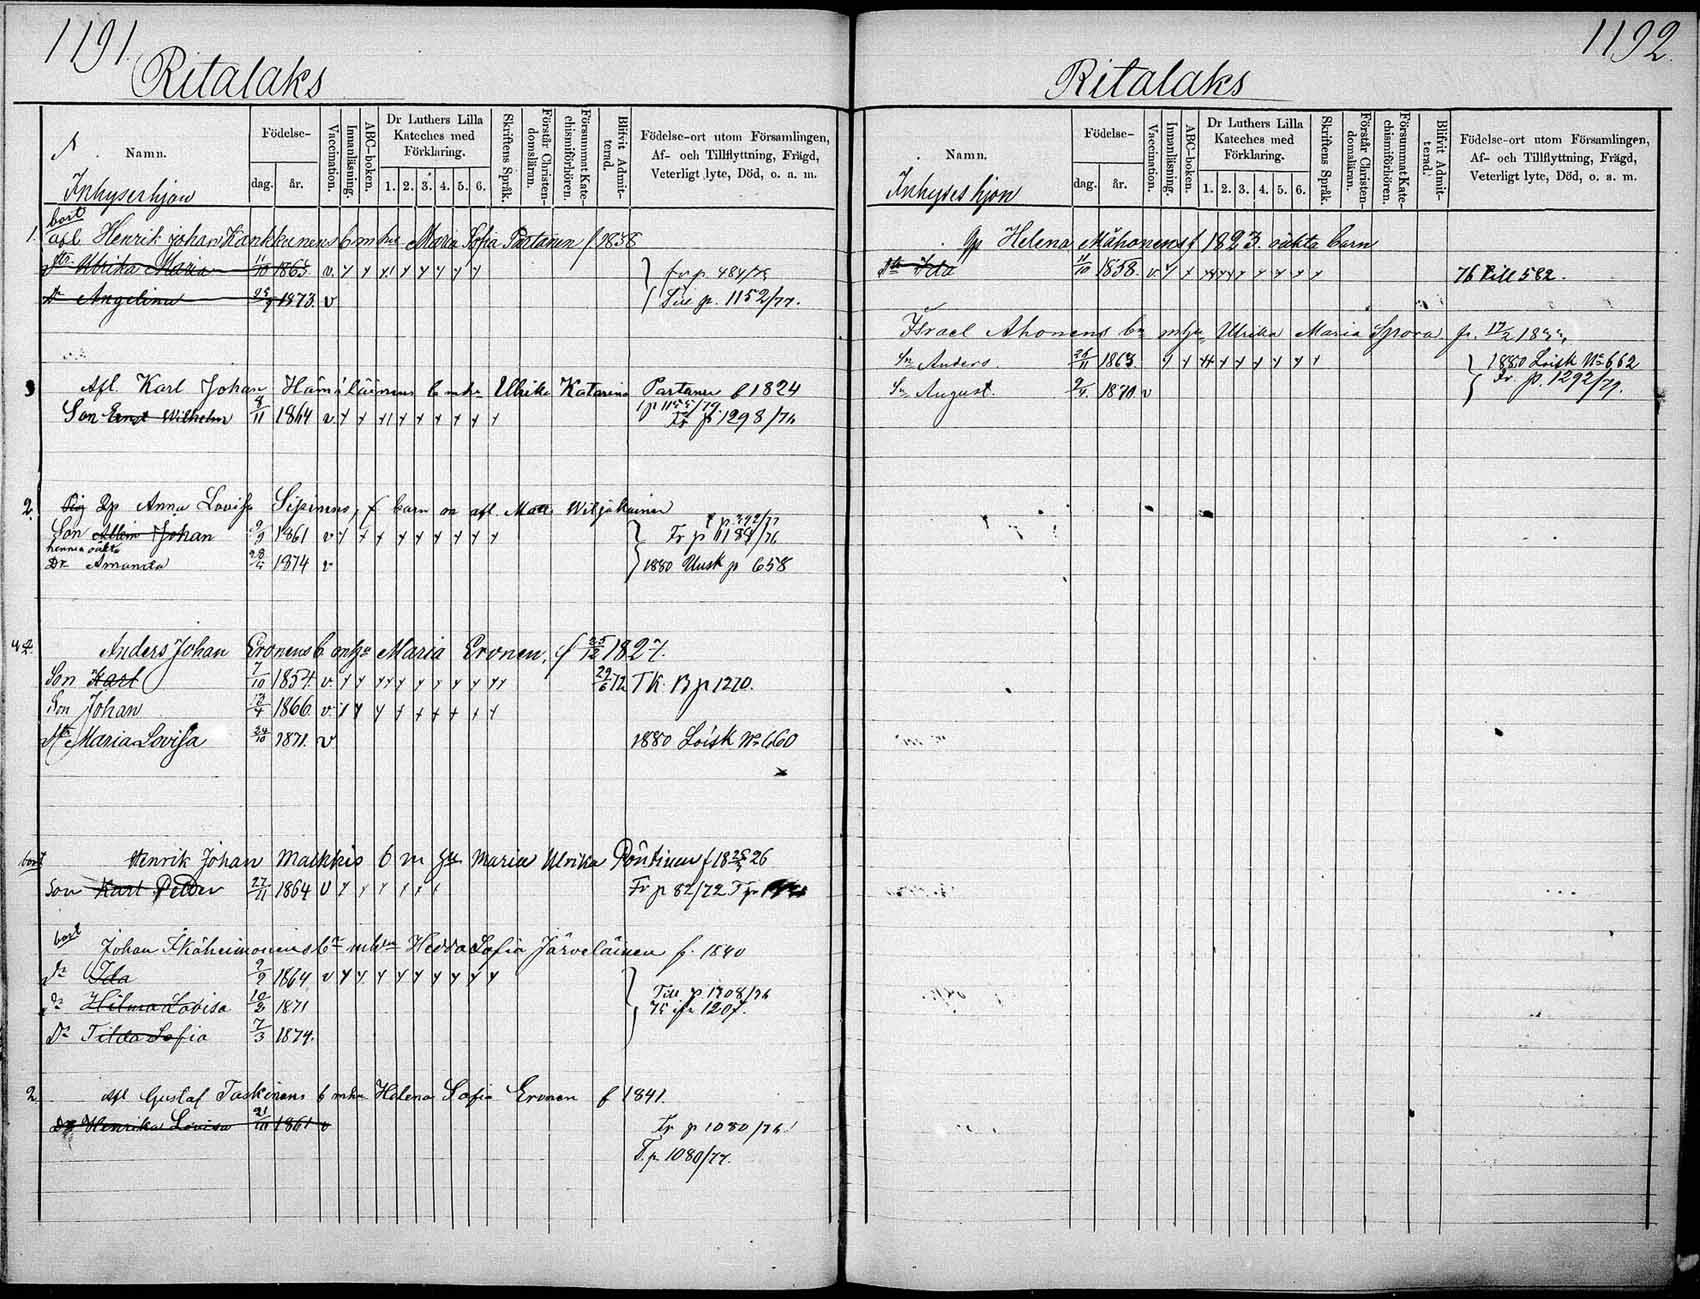 1191.
Ritalaks
Namn.
Födelse-
dag. år.
Vaccination.
Innanläsning.
ABC-boken.
Dr Luthers Lilla Kateches med Förklaring.
1. 2. 3. 4. 5. 6.
Skriftens Språk.
Förstår Christendomsläran.
Försummat Katechismiförhören.
Blifvit Admitterad.
Födelse-ort utom Församlingen, Af- och Tillflyttning, Frägd, Veterligt lyte, Död, o. a. m.
Inhyseshjon
bort
1. afl. Henrik Johan Kankkunens b m hu Maria Sofia Partanen f 1838
Dtr. Ulrika Maria 11/10 1865 v. fr p. 484/75
Dr Angelina 1873. v Till p. 1152/77.
3 Afl. Karl Johan Hämäläinens b m hu Ulrika Katarina Partanen f 1824
Son Ernst Wilhelm 8/11 1864 v. Fr p 1298/76
2. Pig Anna Lovisa Sipinens, f barn m afl. Matts Wiljakainen
Son Albin Johan 9/9 1861 v Fr p 1184/76
hennes oäkta
Dr. Amanda 1874 v 1880 Uusk p 658
Anders Johan Eronens b m hu Maria Eronen, f 25/12 1827.
Son Karl 7/10 1854. v. 29/6 72 TK. B p 1210.
Son Johan 1866. v.
Dtr Maria Lovisa 24/10 1871. v 1880 Loisk No 660
bort Henrik Johan Maikkis b m hu Maria Ulrika Pöntinen f 18 26
Son Karl Petter 27/11 1864 v Fr p 82/72 T p
bort Johan Ikäheimonens bn m hu Hedda Sofia Järveläinen f. 1840
Dr Ida 2/9 1864 v
Dr Hilma Lovisa 10/2 1871 Till. p. 1708/76
75 ifr 1207.
Dr Tilda Sofia 7/3 1874.
2. Afl Gustaf Taskinens b m hu Helena Sofia Eronen f 1841.
Dr Henrika Lovisa 21/10 1861 v Fr p 1080/76
T. p 1080/77.
1192.
Ritalaks
Namn.
Födelse-
dag. år.
Vaccination.
Innanläsning.
ABC-boken.
Dr Luthers Lilla Kateches med Förklaring.
1. 2. 3. 4. 5. 6.
Skriftens Språk.
Förstår Christendomsläran.
Försummat Katechismiförhören.
Blifvit Admitterad.
Födelse-ort utom Församlingen, Af- och Tillflyttning, Frägd, Veterligt lyte, Död, o. a. m.
Inhyses hjon
Qp Helena Mähönens f 1823 oäkta barn
Dtr Ida 11/10 1858. v 76 till 582.
Israel Ahonens bn m hu Ulrika Maria Spora
Sn Anders. 1863. 1880 Loisk No 662
Sn August. 1870. v Fr p. 1292/79.